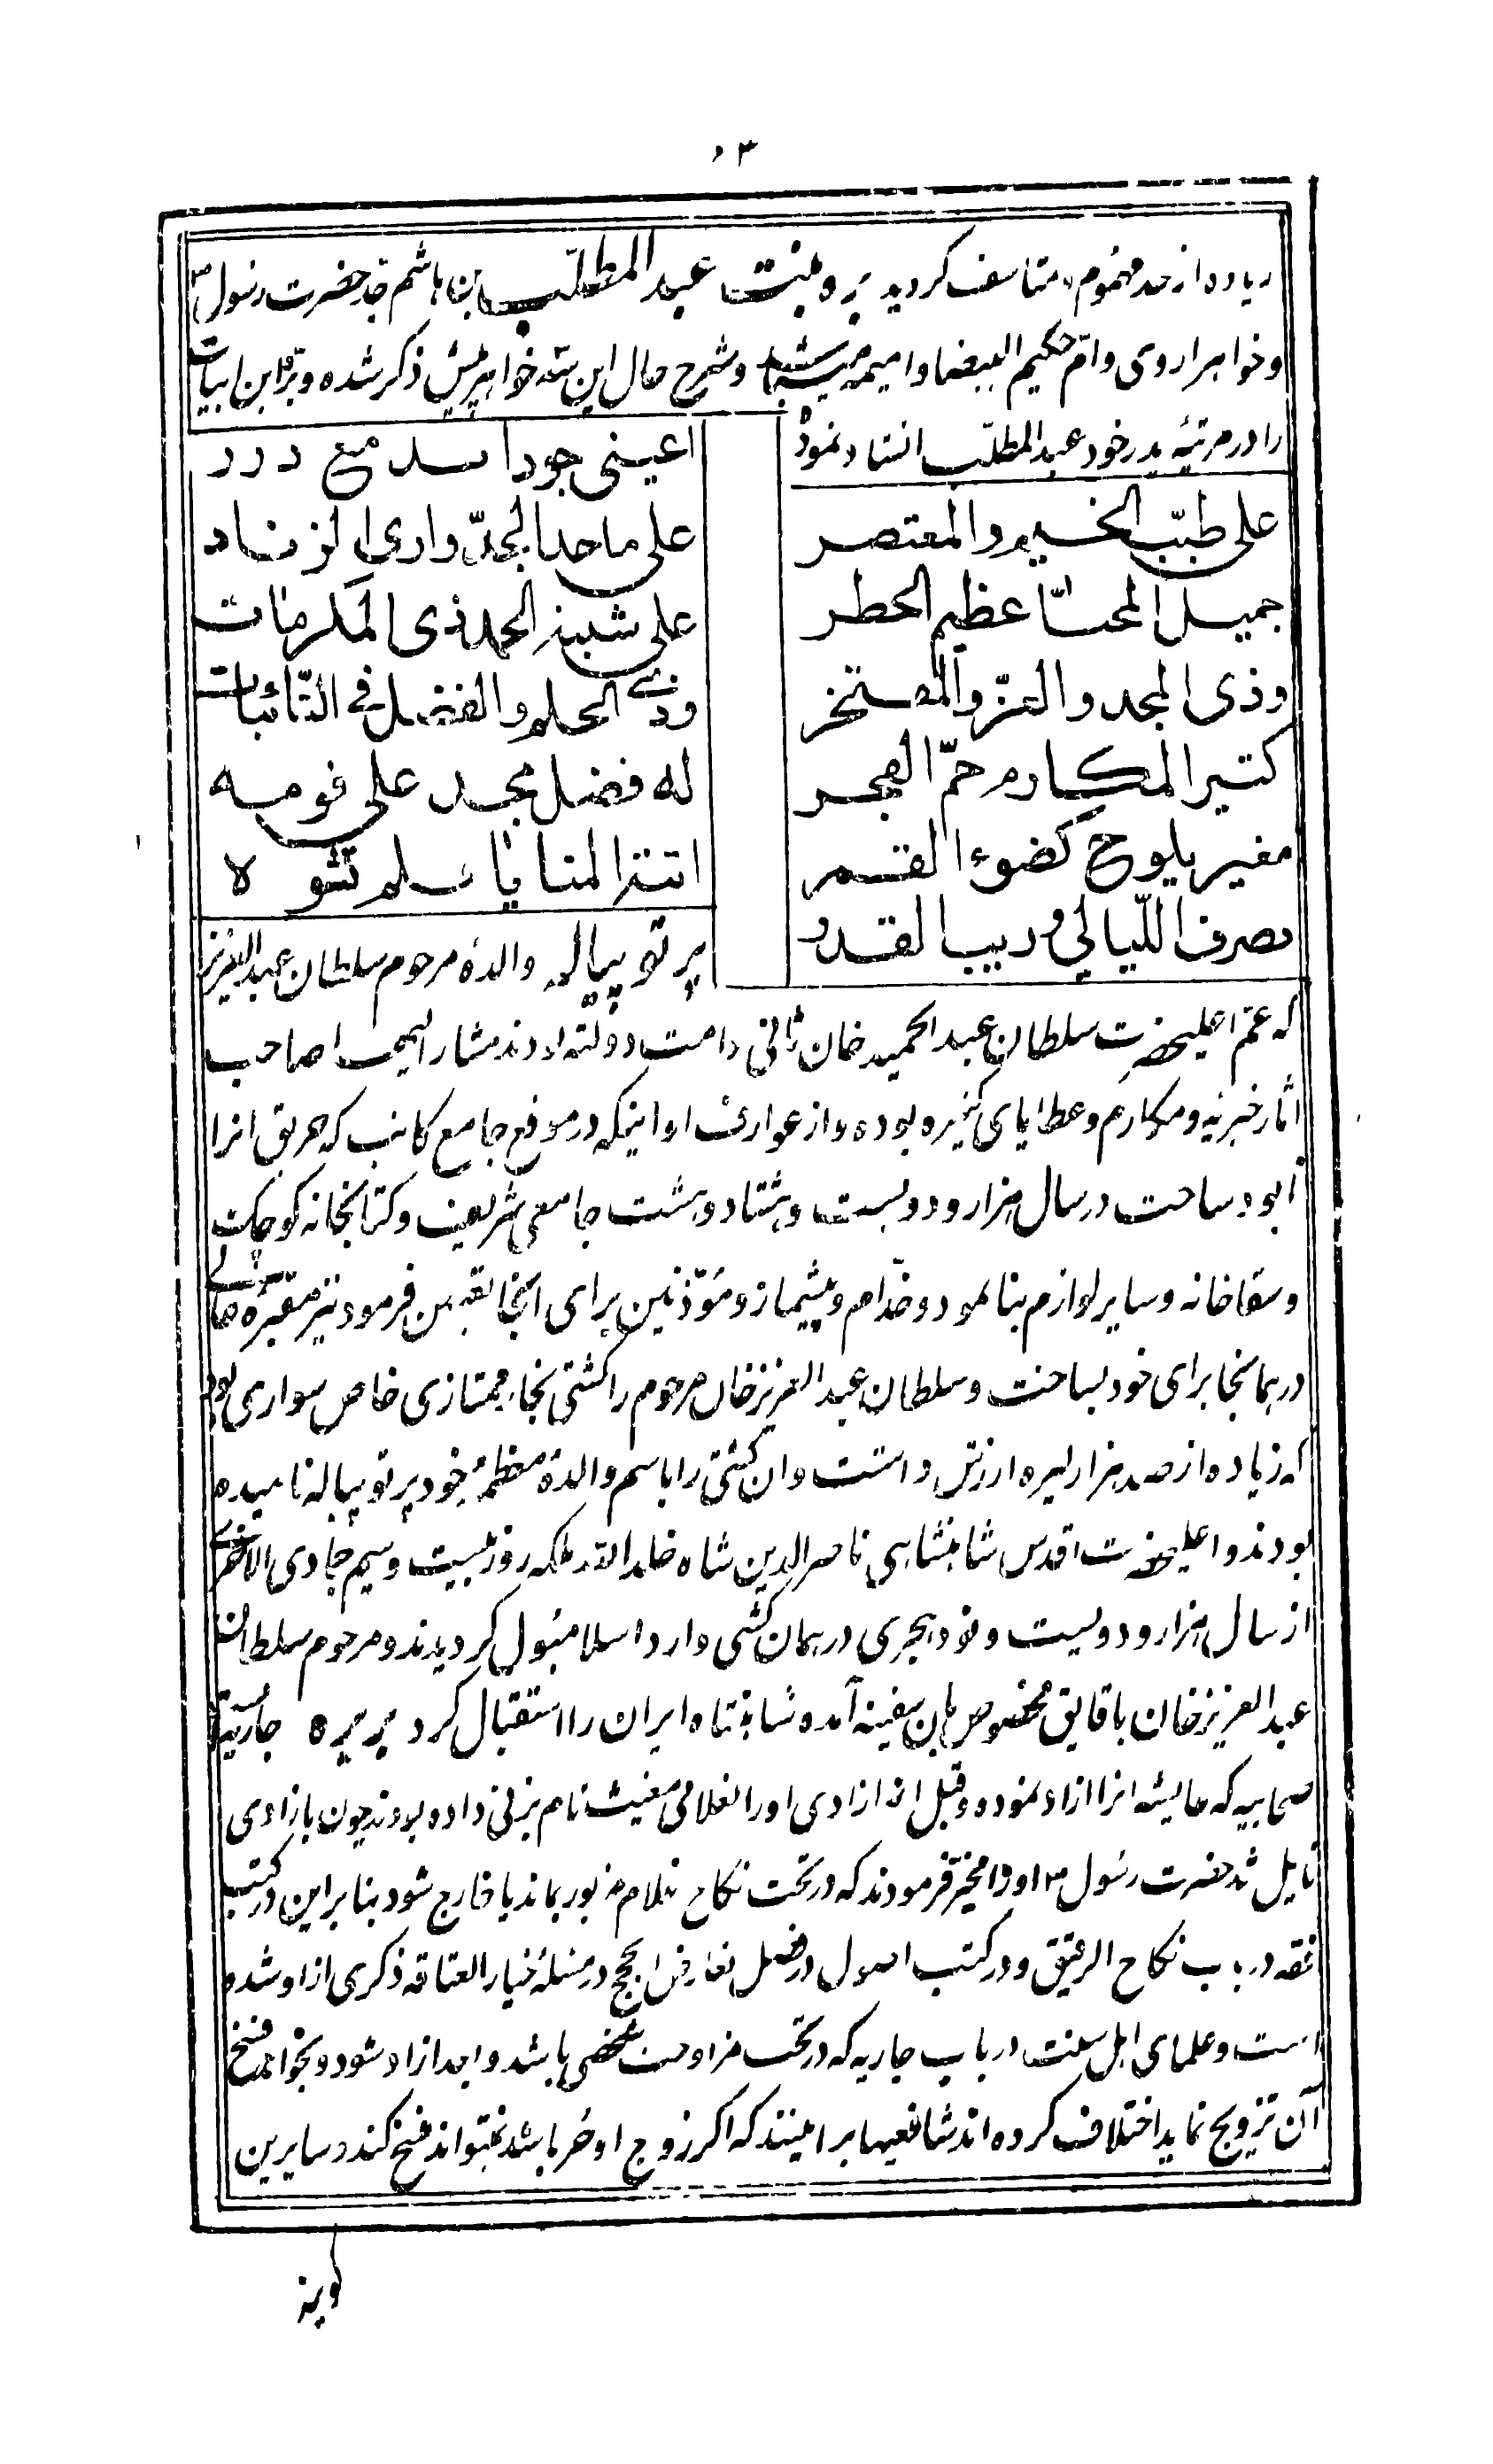 ۳۰
زیاده از حد مهموم و متاسف گردید بره بنت عبد المطلّب بن هاشم جد حضرت رسول ص
و خواهر اروی و امّ حکیم البیضا و امیمه میباشد و شرح حال این سه خواهر پیش ذکر شده و بره این ابیات
را در مرثیه پدر خود عبد المطلّب انشاد نموده
اعینی جودا بدمع درر
علی طیّب الخیم و المعتصر
علی ماجد الجدّ واری الزناد
جمیل المحیّا عظیم الخطر
علی شیبة الحمد ذی المکرمات
و ذی المجد و العزّ و المفتخر
و ذی الحلم و الفضل فی النّائبات
کثیر المکارم جمّ الفجر
له فضل مجد علی قومه
منیر یلوح کضوء القمر
اتته المنایا فلم تشوه
بصرف اللّیالی و ریب القدر
پرتو پیاله والدهٔ مرحوم سلطان عبد العزیز
که عمّ اعلیحضرت سلطان عبد الحمید خان ثانی دامت دولته اند مشار الیها صاحب
آثار خیریه و مکارم و عطایای کثیره بوده و از عوارف او اینکه در موقع جامع کاتب که حریق آنرا
نابود ساخت در سال هزار و دویست و هشتاد و هشت جامعی شریف و کتابخانه کوچک
و سقاخانه و سایر لوازم بنا نمود و خدّام و پیشنماز و مؤذنین برای آنجا تعیین فرمود نیز مقبره عالی
در همانجا برای خود بساخت و سلطان عبد العزیز خان مرحوم را کشتی بخار ممتازی خاص سواری بود
که زیاده از صد هزار لیره ارزش داشت و آن کشتی را باسم والدهٔ معظمهٔ خود پرتو پیاله نامیده
بودند و اعلیحضرت اقدس شاهنشاهی ناصر الدین شاه خلد الله ملکه روز بیست و سیم جمادی الاخری
از سال هزار و دویست و نود هجری در همان کشتی وارد اسلامبول گردیدند و مرحوم سلطان
عبد العزیز خان با قایق مخصوص بآن سفینه آمده شاهنشاه ایران را استقبال کرد بریره جاریهٔ
صحابیه که عایشه آنرا آزاد نموده و قبل از آزادی او را بغلامی مغیث نام بزنی داده بودند چون بآزادی
نایل شد حضرت رسول ص او را مخیّر فرمودند که در تحت نکاح غلام مزبور بماند یا خارج شود بنا براین در کتب
فقه در باب نکاح الرقیق و در کتب اصول در فصل تعارض الحجج در مسئلهٔ خیار العتاقه ذکری از او شده
است و علمای اهل سنت در باب جاریه که در تحت مزاوجت شخصی باشد و بعد آزاد شود و بخواهد فسخ
آن تزویج نماید اختلاف کرده اند شافعیها بر اینند که اگر زوج او حر باشد نمیتواند فسخ کند و سایرین
گویند